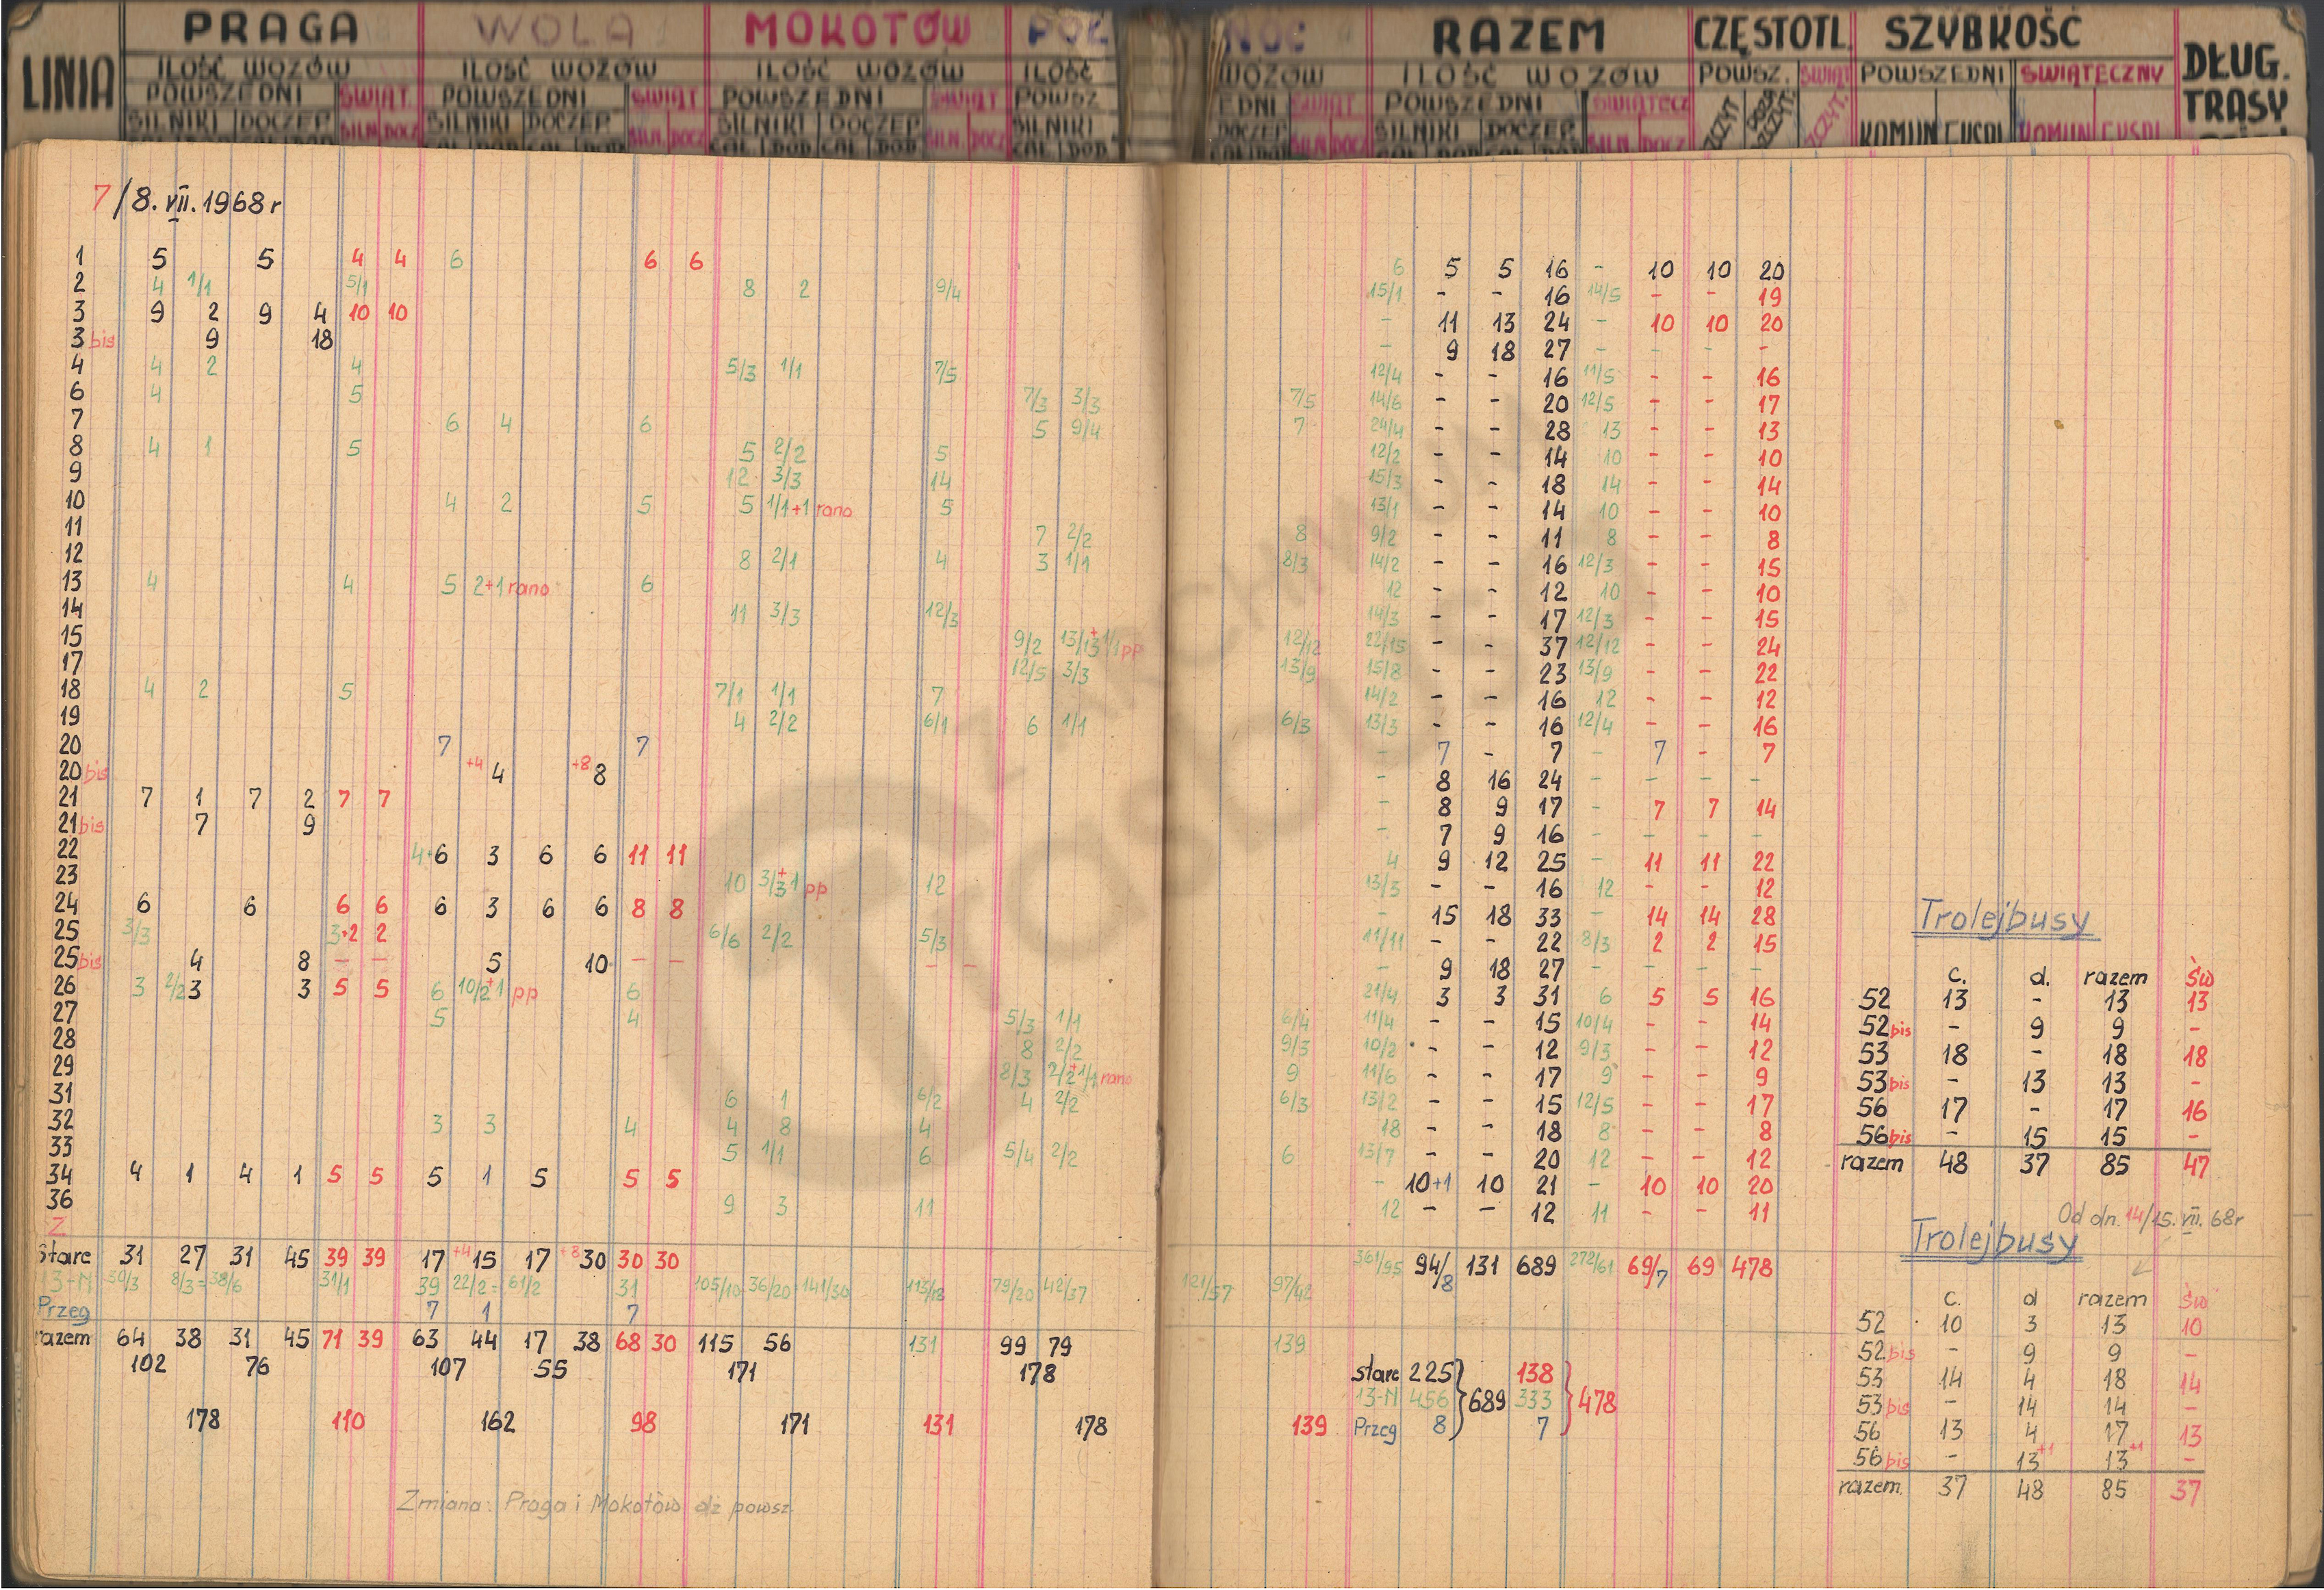 LINIA PRAGA WOLA MOKOTÓW PÓŁ NOC RAZEM CZĘSTOTL. SZYBKOŚĆ DŁUG. TRASY
ILOŚĆ WOZÓW ILOŚĆ WOZÓW ILOŚĆ WOZÓW ILOŚĆ WOZÓW ILOŚĆ WOZÓW POWSZ. ŚWIĄT POWSZEDNI ŚWIĄTECZNY
POWSZEDNI ŚWIĄT. POWSZEDNI ŚWIĄT POWSZEDNI ŚWIĄT POWSZ EDNI ŚWIĄT POWSZEDNI ŚWIĄTECZ SZCZYT POZA SZCZYT. SZCZYT.
SILNIKI DOCZEP SILN. DOCZ SILNIKI DOCZEP SILN. DOCZ SILNIKI DOCZEP SILN. DOCZ SILNIKI DOCZEP SILN. DOCZ SILNIKI DOCZEP SILN. DOCZ KOMUN EKSPL KOMUN EKSPL
7/8. VII. 1968 r
1 5 5 4 4 6 6 6 6 5 5 16 - 10 10 20
2 4 1/1 5/1 8 2 9/4 15/1 - - 16 14/5 - - 19
3 9 2 9 4 10 10 - 11 13 24 - 10 10 20
3 bis 9 18 - 9 18 27 - - - -
4 4 2 4 5/3 1/1 7/5 12/4 - - 16 11/5 - - 16
6 4 5 7/3 3/3 7/5 14/6 - - 20 12/5 - - 17
7 6 4 6 5 9/4 7 24/4 - - 28 13 - - 13
8 4 1 5 5 2/2 5 12/2 - - 14 10 - - 10
9 12 3/3 14 15/3 - - 18 14 - - 14
10 4 2 5 5 1/1+1 rano 5 13/1 - - 14 10 - - 10
11 7 2/2 8 9/2 - - 11 8 - - 8
12 8 2/1 4 3 1/1 8/3 14/2 - - 16 12/3 - - 15
13 4 4 5 2+1 rano 6 12 - - 12 10 - - 10
14 11 3/3 12/3 14/3 - - 17 12/3 - - 15
15 9/2 13/13+1/1 pp 12/12 22/15 - - 37 12/12 - - 24
17 12/5 3/3 13/9 15/8 - - 23 13/9 - - 22
18 4 2 5 7/1 1/1 7 14/2 - - 16 12 - - 12
19 4 2/2 6/1 6 1/1 6/3 13/3 - - 16 12/4 - - 16
20 7 7 - 7 - 7 - 7 - 7
20 bis +4 4 +8 8 - 8 16 24 - - - -
21 7 1 7 2 7 7 - 8 9 17 - 7 7 14
21 bis 7 9 - 7 9 16 - - - -
22 4+6 3 6 6 11 11 4 9 12 25 - 11 11 22
23 10 3/3+1 pp 12 13/3 - - 16 12 - - 12
24 6 6 6 6 6 3 6 6 8 8 - 15 18 33 - 14 14 28
25 3/3 3+2 2 6/6 2/2 5/3 11/11 - - 22 8/3 2 2 15
25 bis 4 8 - - 5 10 - - - - - 9 18 27 - - - -
26 3 2/2 3 3 5 5 6 10/2+1 pp 6 21/4 3 3 31 6 5 5 16
27 5 4 5/3 1/1 6/4 11/4 - - 15 10/4 - - 14
28 8 2/2 9/3 10/2 - - 12 9/3 - - 12
29 8/3 2/2+1/1 rano 9 11/6 - - 17 9 - - 9
31 6 1 6/2 4 2/2 6/3 13/2 - - 15 12/5 - - 17
32 3 3 4 4 8 4 18 - - 18 8 - - 8
33 5 1/1 6 5/4 2/2 6 13/7 - - 20 12 - - 12
34 4 1 4 1 5 5 5 1 5 5 5 - 10+1 10 21 - 10 10 20
36 9 3 11 12 - - 12 11 - - 11
Z
Stare 31 27 31 45 39 39 17 +4 15 17 +8 30 30 30 361/95 94/8 131 689 272/61 69/7 69 478
13-N 30/3 8/3=38/6 31/1 39 22/2=61/2 31 105/10 36/20=141/30 113/18 79/20 42/37 121/57 97/42
Przeg 7 1 7
razem 64 38 31 45 71 39 63 44 17 38 68 30 115 56 131 99 79 139
102 76 107 55 171 178
178 110 162 98 171 131 178 139
Stare 225 138
13-N 456 689 333 478
Przeg 8 7
Zmiana: Praga i Mokotów dż powsz.
Trolejbusy
c. d. razem św
52 13 - 13 13
52 bis - 9 9 -
53 18 - 18 18
53 bis - 13 13 -
56 17 - 17 16
56 bis - 15 15 -
razem 48 37 85 47
Od dn. 14/15. VII. 68r
Trolejbusy
c. d razem św
52 10 3 13 10
52 bis - 9 9 -
53 14 4 18 14
53 bis - 14 14 -
56 13 4 17 13
56 bis - 13+1 13+1 -
razem 37 48 85 37